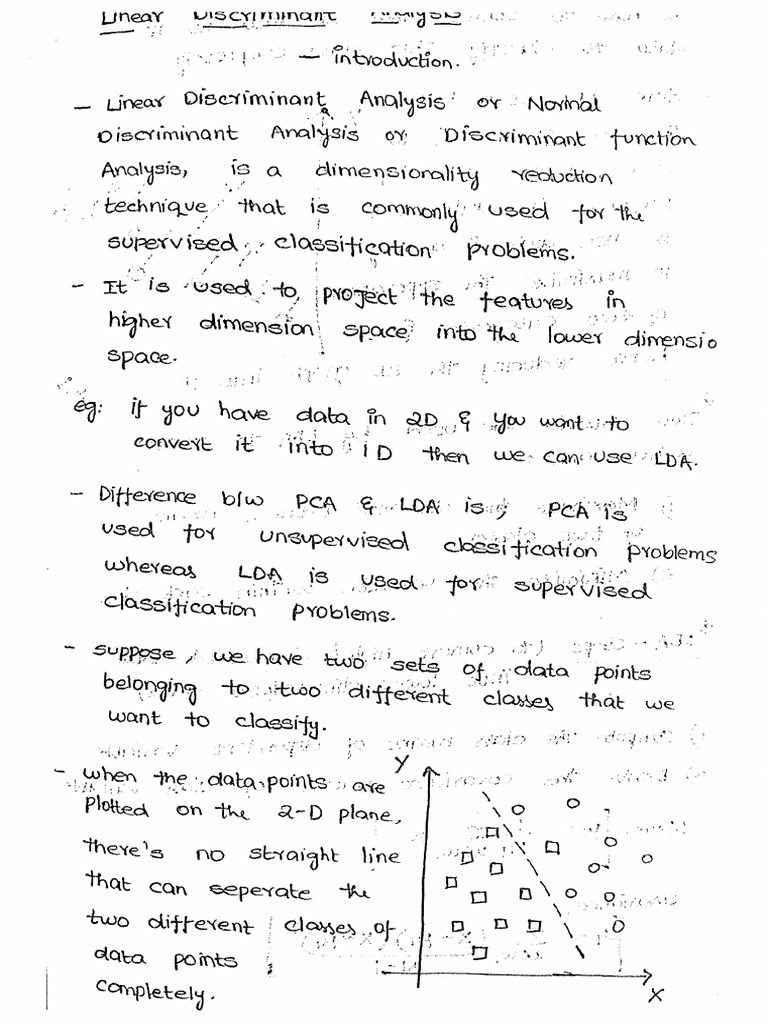 Linear Discriminant Analysis
– introduction.
– Linear Discriminant Analysis or Normal
Discriminant Analysis or Discriminant function
Analysis, is a dimensionality reduction
technique that is commonly used for the
supervised classification problems.
- It is used to project the features in
higher dimension space into the lower dimensio
space.
eg: if you have data in 2D & you want to
convert it into 1D then we can use LDA.
- Difference b/w PCA & LDA is, PCA is
used for unsupervised classification problems
whereas LDA is used for supervised
classification problems.
- suppose, we have two sets of data points
belonging to two different classes that we
want to classify.
- when the data points are
plotted on the 2-D plane,
there's no straight line
that can seperate the
two different classes of
data points
completely.
Y
X